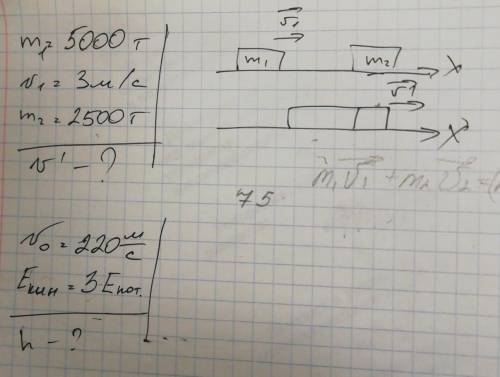 m₁ = 5000 т
v₁ = 3 м/с
m₂ = 2500 т
v' - ?
v₁
m₁
m₂
X
v'
X
m₁v₁ + m₂v₂ = (
75
v₀ = 220 м/с
Eкин = 3 Eпот.
h - ?